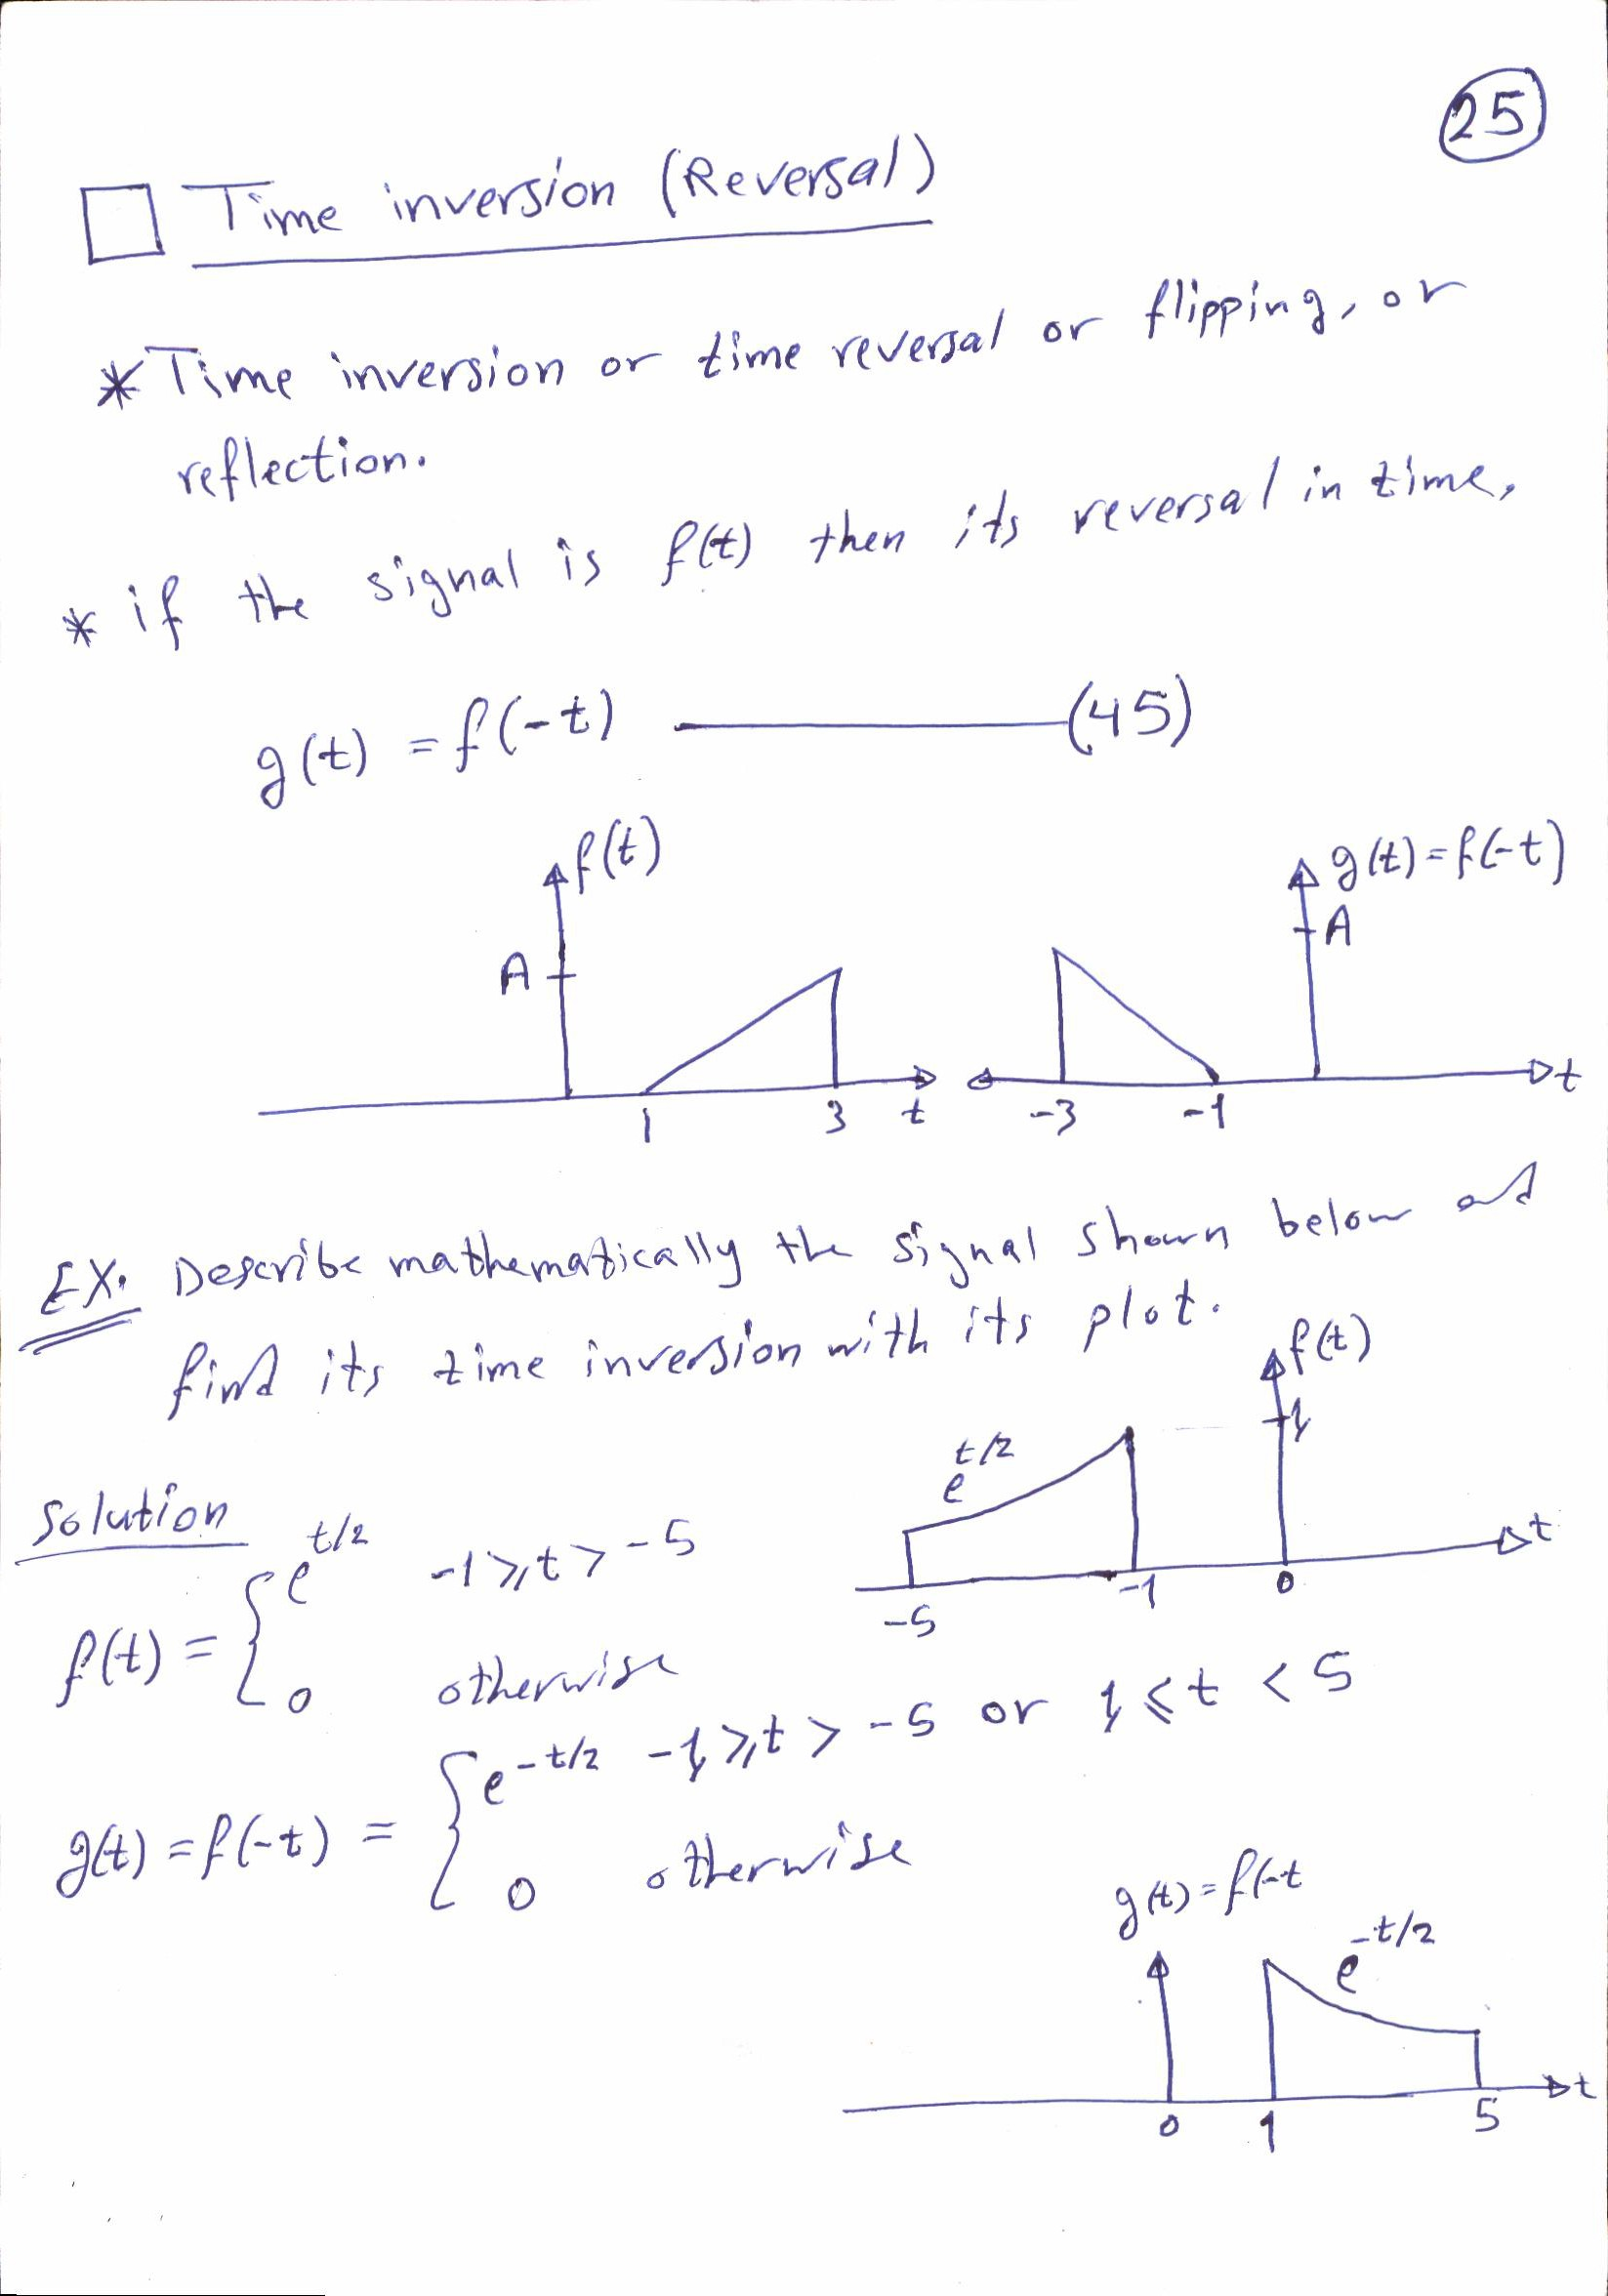 25
Time inversion (Reversal)
* Time inversion or time reversal or flipping, or
reflection.
* if the signal is f(t) then its reversal in time,
g(t) = f(-t) ———(45)
f(t)
g(t)=f(-t)
A
A
1 3 t
-3 -1 t
EX. Describe mathematically the signal shown below and
find its time inversion with its plot.
f(t)
1
e^{t/2}
t
-5 -1 0
Solution
f(t) = { e^{t/2} -1 ⩾ t > -5
0 otherwise
g(t) = f(-t) = { e^{-t/2} -1 ⩾ t > -5 or 1 ⩽ t < 5
0 otherwise
g(t)=f(-t
e^{-t/2}
0 1 5 t